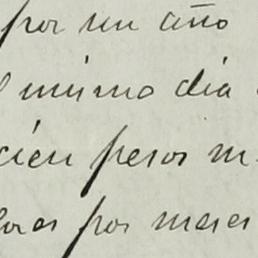 por un año
l mismo dia
cien pesos m
por meses